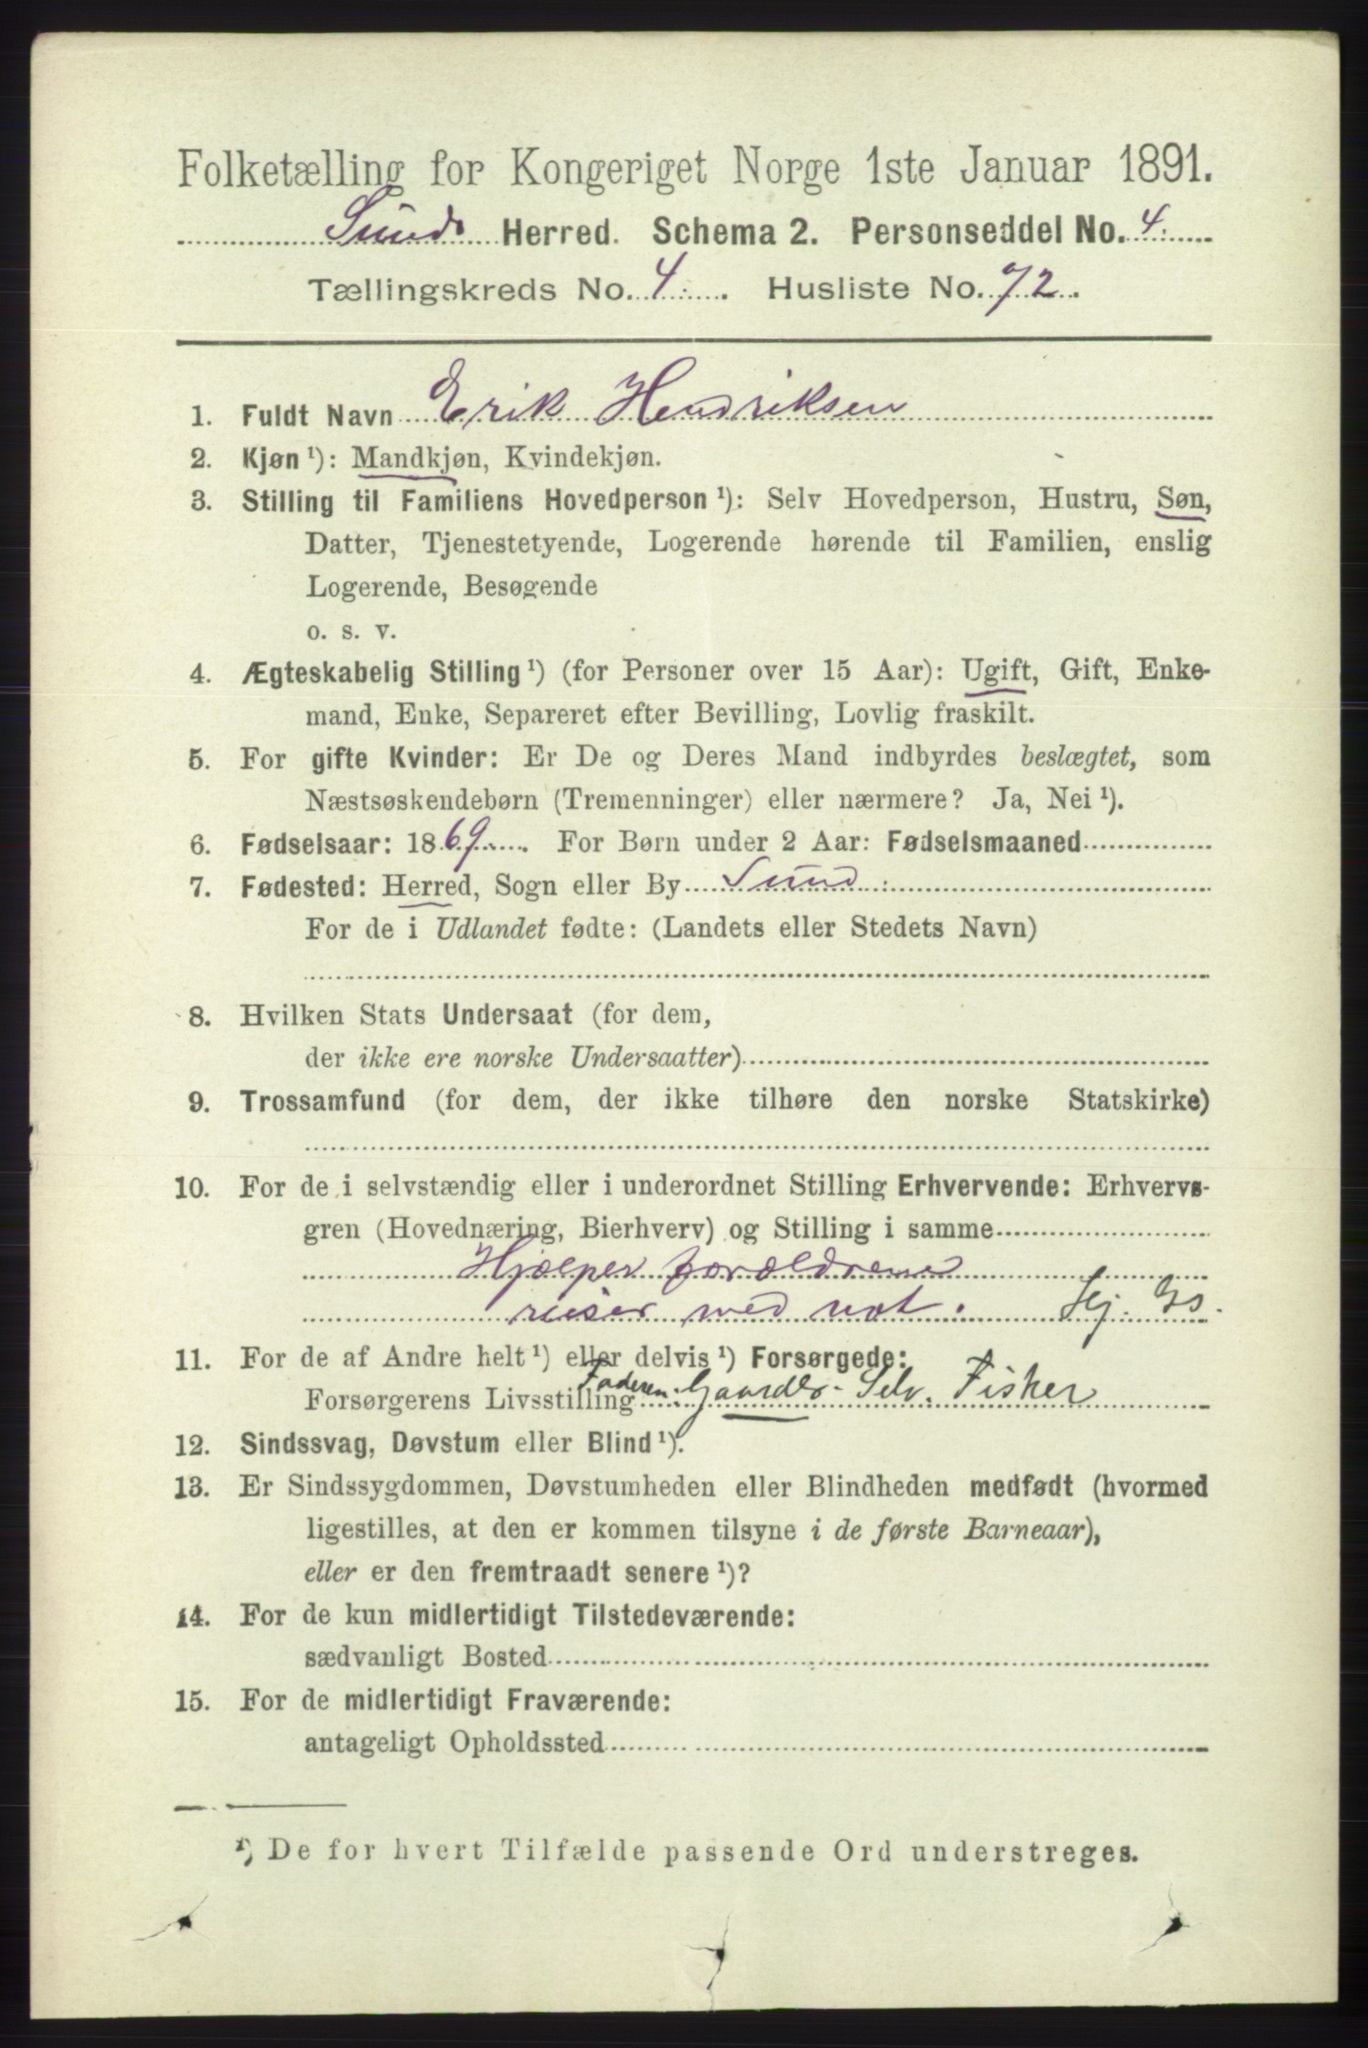 Folketælling for Kongeriget Norge 1ste Januar 1891.
Sunds Herred. Schema 2. Personseddel No. 4.
Tællingskreds No. 4. Husliste No. 72.
1. Fuldt Navn Erik Hendriksen
2. Kjøn ¹): Mandkjøn, Kvindekjøn.
3. Stilling til Familiens Hovedperson ¹): Selv Hovedperson, Hustru, Søn,
Datter, Tjenestetyende, Logerende hørende til Familien, enslig
Logerende, Besøgende
o. s. v.
4. Ægteskabelig Stilling ¹) (for Personer over 15 Aar): Ugift, Gift, Enke-
mand, Enke, Separeret efter Bevilling, Lovlig fraskilt.
5. For gifte Kvinder: Er De og Deres Mand indbyrdes beslægtet, som
Næstsøskendebørn (Tremenninger) eller nærmere? Ja, Nei ¹).
6. Fødselsaar: 1869. For Børn under 2 Aar: Fødselsmaaned
7. Fødested: Herred, Sogn eller By Sund.
For de i Udlandet fødte: (Landets eller Stedets Navn)
8. Hvilken Stats Undersaat (for dem,
der ikke ere norske Undersaatter)
9. Trossamfund (for dem, der ikke tilhøre den norske Statskirke)
10. For de i selvstændig eller i underordnet Stilling Erhvervende: Erhvervs-
gren (Hovednæring, Bierhverv) og Stilling i samme
Hjælper forældrene
reiser med not. Hj.
11. For de af Andre helt ¹) eller delvis ¹) Forsørgede:
Forsørgerens Livsstilling Faderen: Gaardbr- Selv. Fisker
12. Sindssvag, Døvstum eller Blind ¹).
13. Er Sindssygdommen, Døvstumheden eller Blindheden medfødt (hvormed
ligestilles, at den er kommen tilsyne i de første Barneaar),
eller er den fremtraadt senere ¹)?
14. For de kun midlertidigt Tilstedeværende:
sædvanligt Bosted
15. For de midlertidigt Fraværende:
antageligt Opholdssted
¹) De for hvert Tilfælde passende Ord understreges.